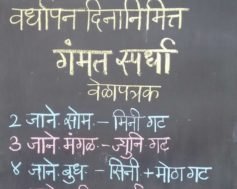 वर्धापन दिनानिमित्त
गंमत स्पर्धा
वेळापत्रक
2 जाने. सोम. - मिनी गट
3 जाने. मंगळ. - ज्युनि गट
४ जाने. बुध. - सिनी + मोठा गट